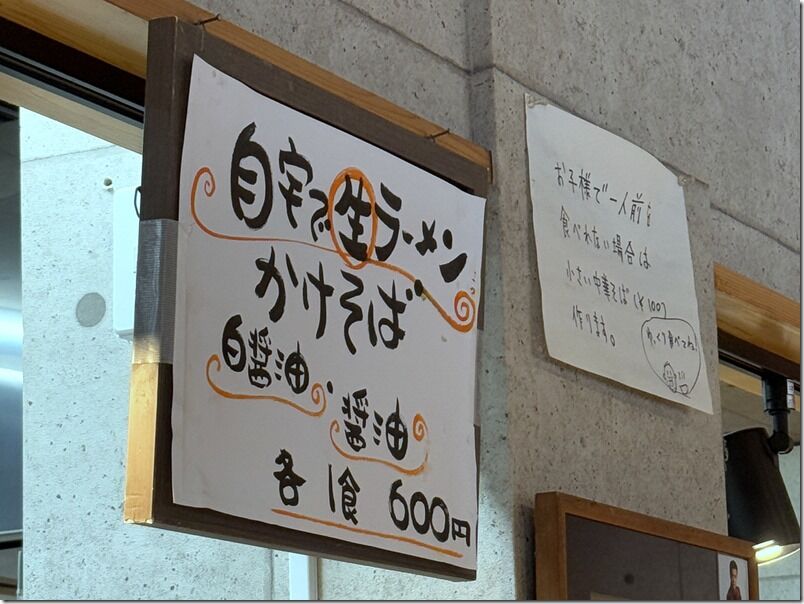 自宅で生ラーメン
かけそば
白醤油・醤油
各1食 600円
お子様で一人前を
食べれない場合は
小さい中華そば
作ります。
ゆっくり食べてね!